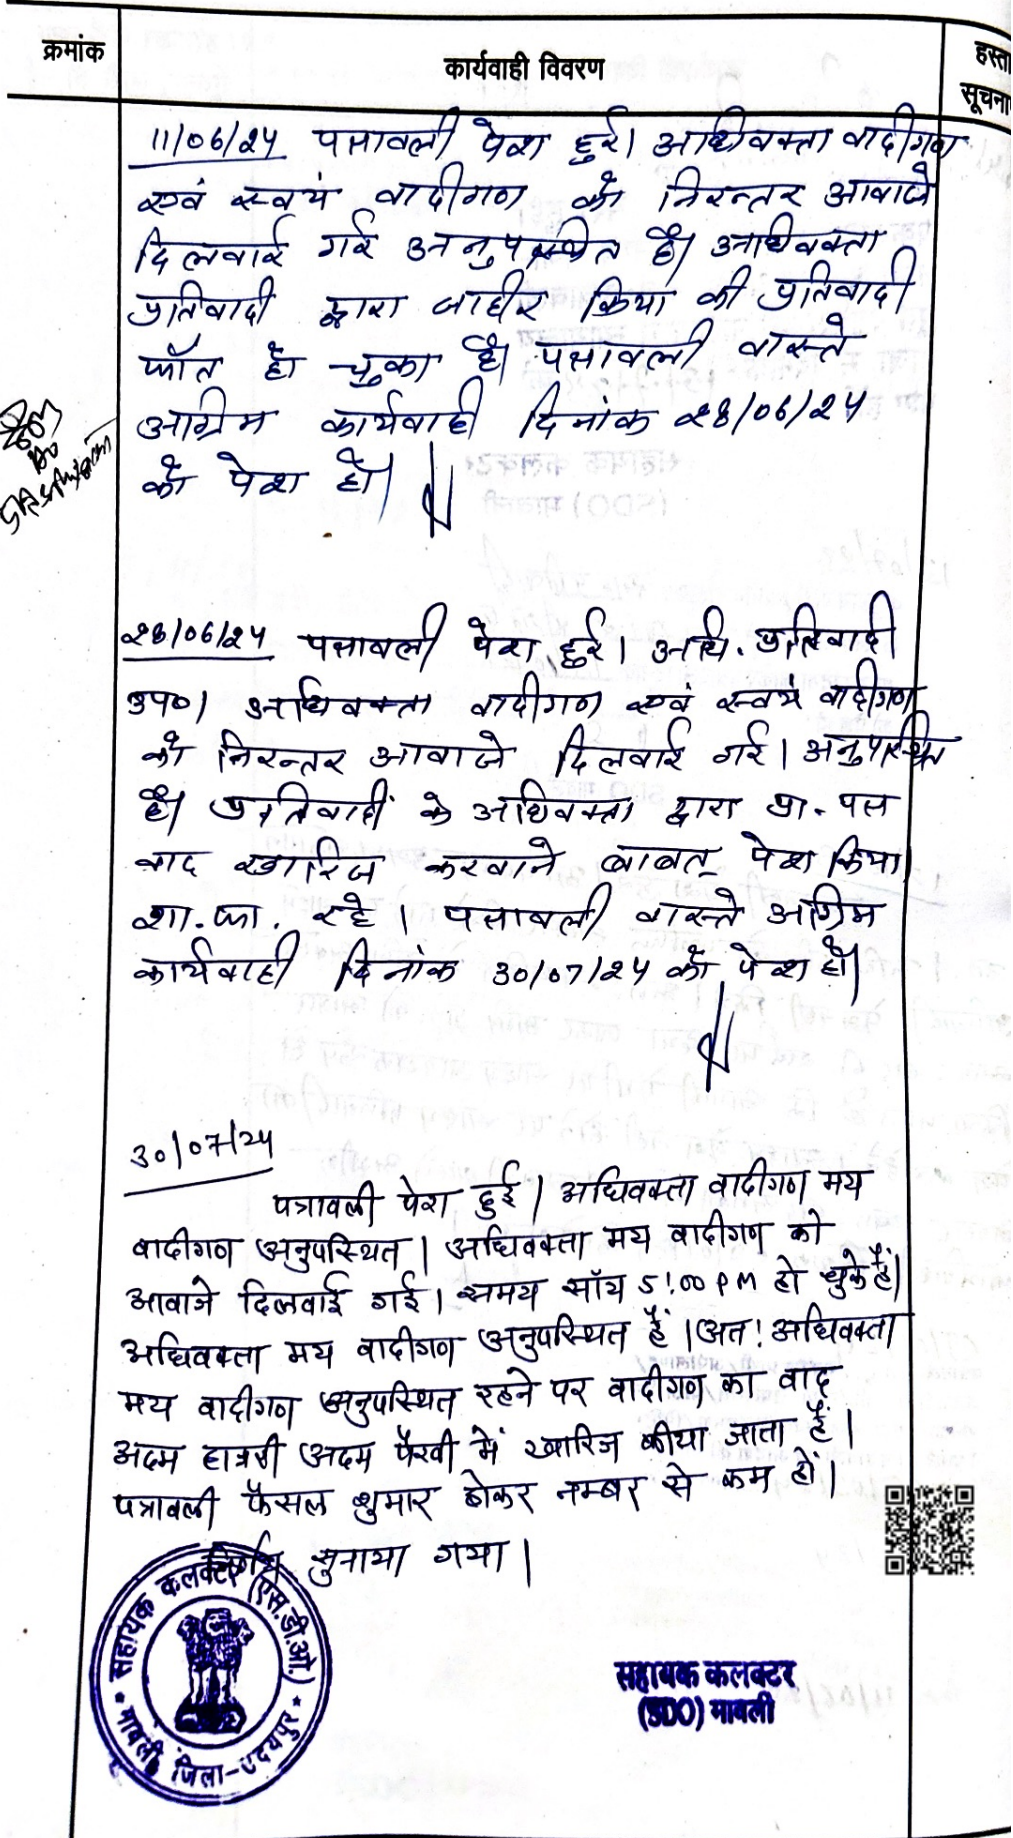 क्रमांक
कार्यवाही विवरण
हस्ता
सूचना
11/06/24 पत्रावली पेश हुई। अधिवक्ता वादीगण
एवं स्वयं वादीगण को निरन्तर आवाजे
दिलवाई गई अनुपस्थित है। अधिवक्ता
प्रतिवादी द्वारा जाहीर किया की प्रतिवादी
फॉत हो चुका है। पत्रावली वास्ते
अग्रिम कार्यवाही दिनांक 28/06/24
को पेश हो।
28/06/24 पत्रावली पेश हुई। अधि. प्रतिवादी
उप०। अधिवक्ता वादीगण एवं स्वयं वादीगण
को निरन्तर आवाजे दिलवाई गई। अनुपस्थित
है। प्रतिवादी के अधिवक्ता द्वारा प्रा. पत्र
वाद खारिज करवाने बाबत् पेश किया।
शा. फा. रहे। पत्रावली वास्ते अग्रिम
कार्यवाही दिनांक 30/07/24 को पेश हो।
30/07/24
पत्रावली पेश हुई। अधिवक्ता वादीगण मय
वादीगण अनुपस्थित। अधिवक्ता मय वादीगण को
आवाजे दिलवाई गई। समय सॉय 5:00 PM हो चुके हैं।
अधिवक्ता मय वादीगण अनुपस्थित हैं। अत: अधिवक्ता
मय वादीगण अनुपस्थित रहने पर वादीगण का वाद
अदम हाजरी अदम पैरवी में खारिज कीया जाता हैं।
पत्रावली फैसल शुमार होकर नम्बर से कम हों।
निर्णय सुनाया गया।
सहायक कलक्टर (एस.डी.ओ.)
मावली जिला-उदयपुर
सहायक कलक्टर
(SDO) मावली